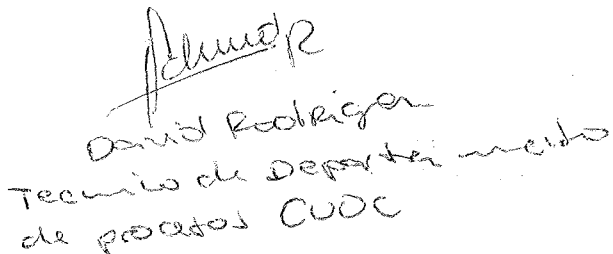 David Rodriguez
Tecnico de Departamento
de procesos CUOC